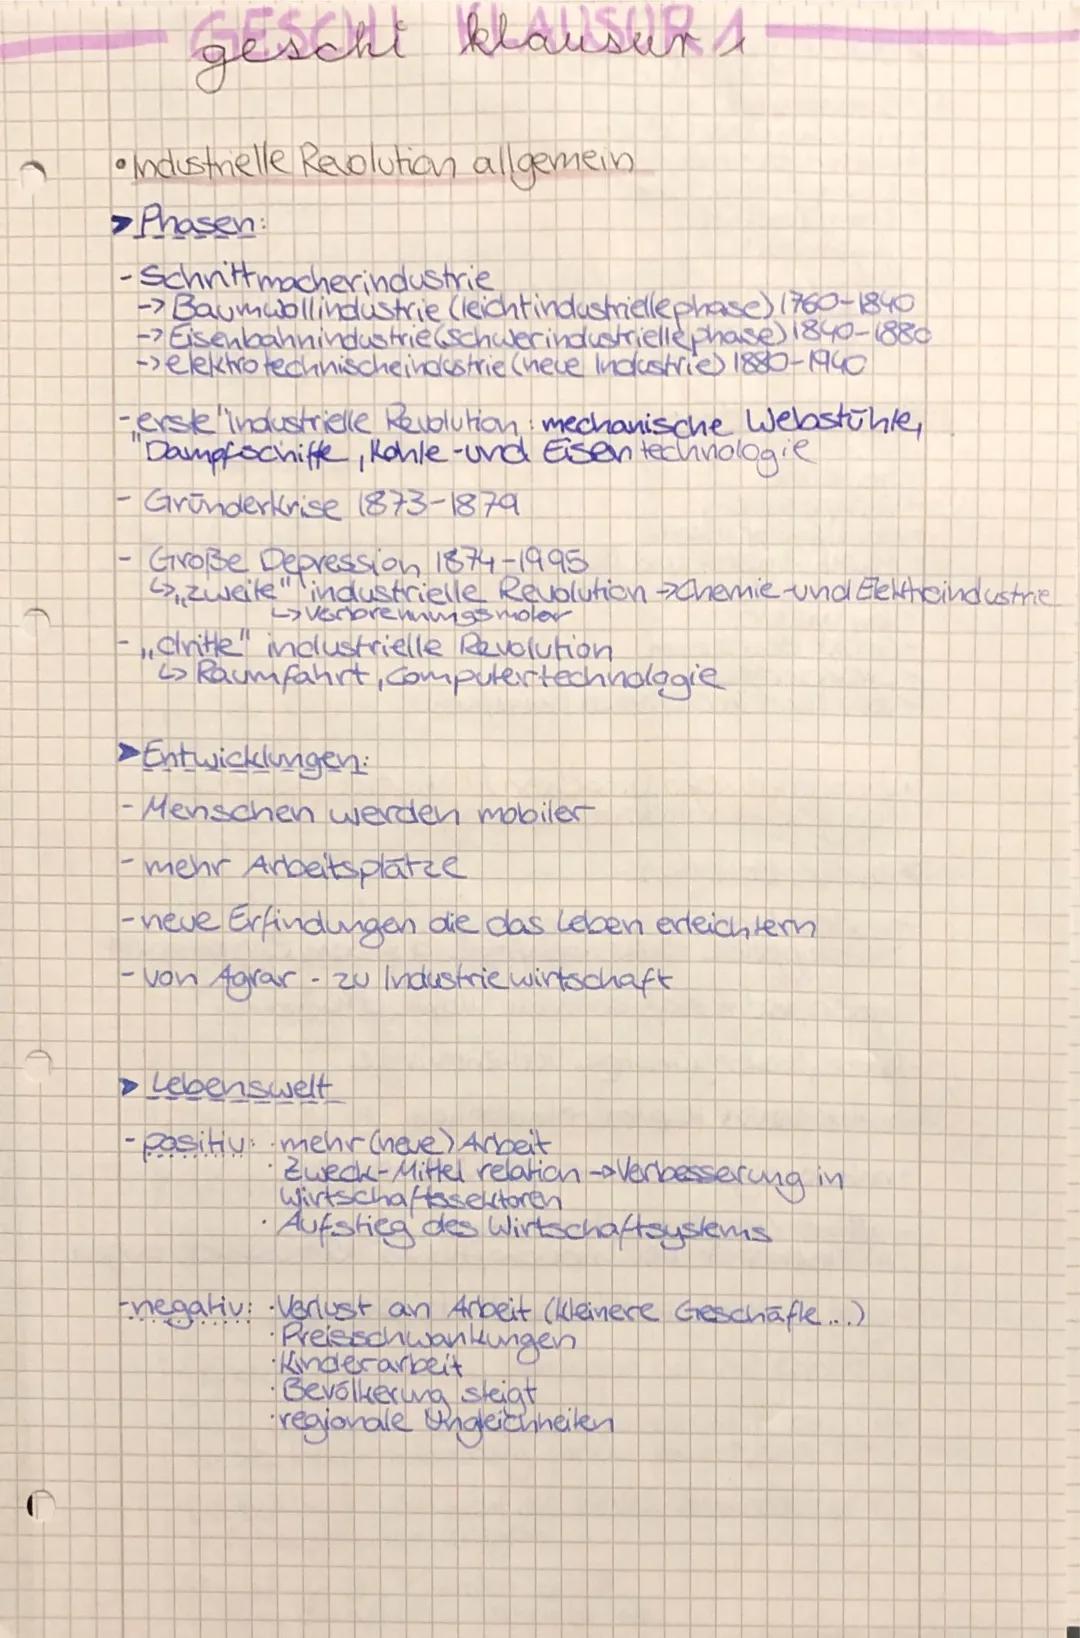 GESCHI KLAUSUR 1
geschi klausur 1
• Industrielle Revolution allgemein
➤ Phasen:
- Schrittmacherindustrie
-> Baumwollindustrie (leichtindustriellephase) 1760-1840
-> Eisenbahnindustrie (schwerindustriellephase) 1840-1880
-> elektrotechnischeindustrie (neue Industrie) 1880-1940
- "erste" industrielle Revolution: mechanische Webstühle,
Dampfschiffe, Kohle-und Eisentechnologie
- Gründerkrise 1873-1879
- Große Depression 1874-1995
↳ „zweite" industrielle Revolution → Chemie-und Elektroindustrie
↳ Verbrennungsmotor
- „dritte" industrielle Revolution
↳ Raumfahrt, Computertechnologie
➤ Entwicklungen:
- Menschen werden mobiler
- mehr Arbeitsplätze
- neue Erfindungen die das Leben erleichtern
- von Agrar - zu Industriewirtschaft
➤ Lebenswelt
- positiv: · mehr (neue) Arbeit
· Zweck-Mittel relation → Verbesserung in
Wirtschaftssektoren
· Aufstieg des Wirtschaftsystems
- negativ: · Verlust an Arbeit (kleinere Geschäfte...)
· Preisschwankungen
· Kinderarbeit
· Bevölkerung steigt
· regionale Ungleichheiten